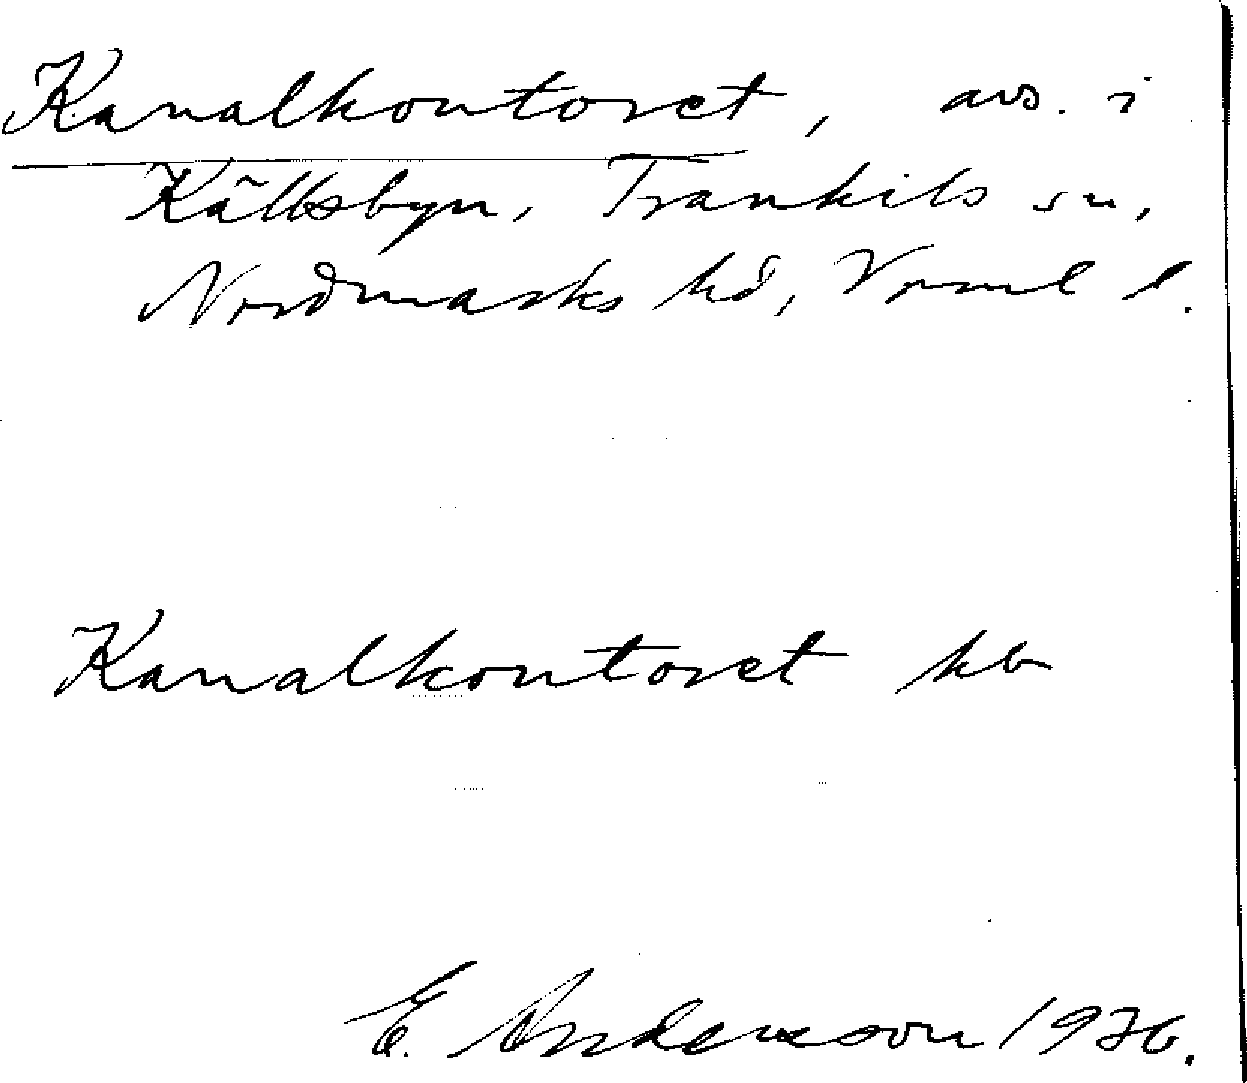 Kanalkontoret, avs. i
Källsbyn, Trankils sn,
Nordmarks hd, Vrml l.
Kanalkontoret kb
E. Andersson 1936.